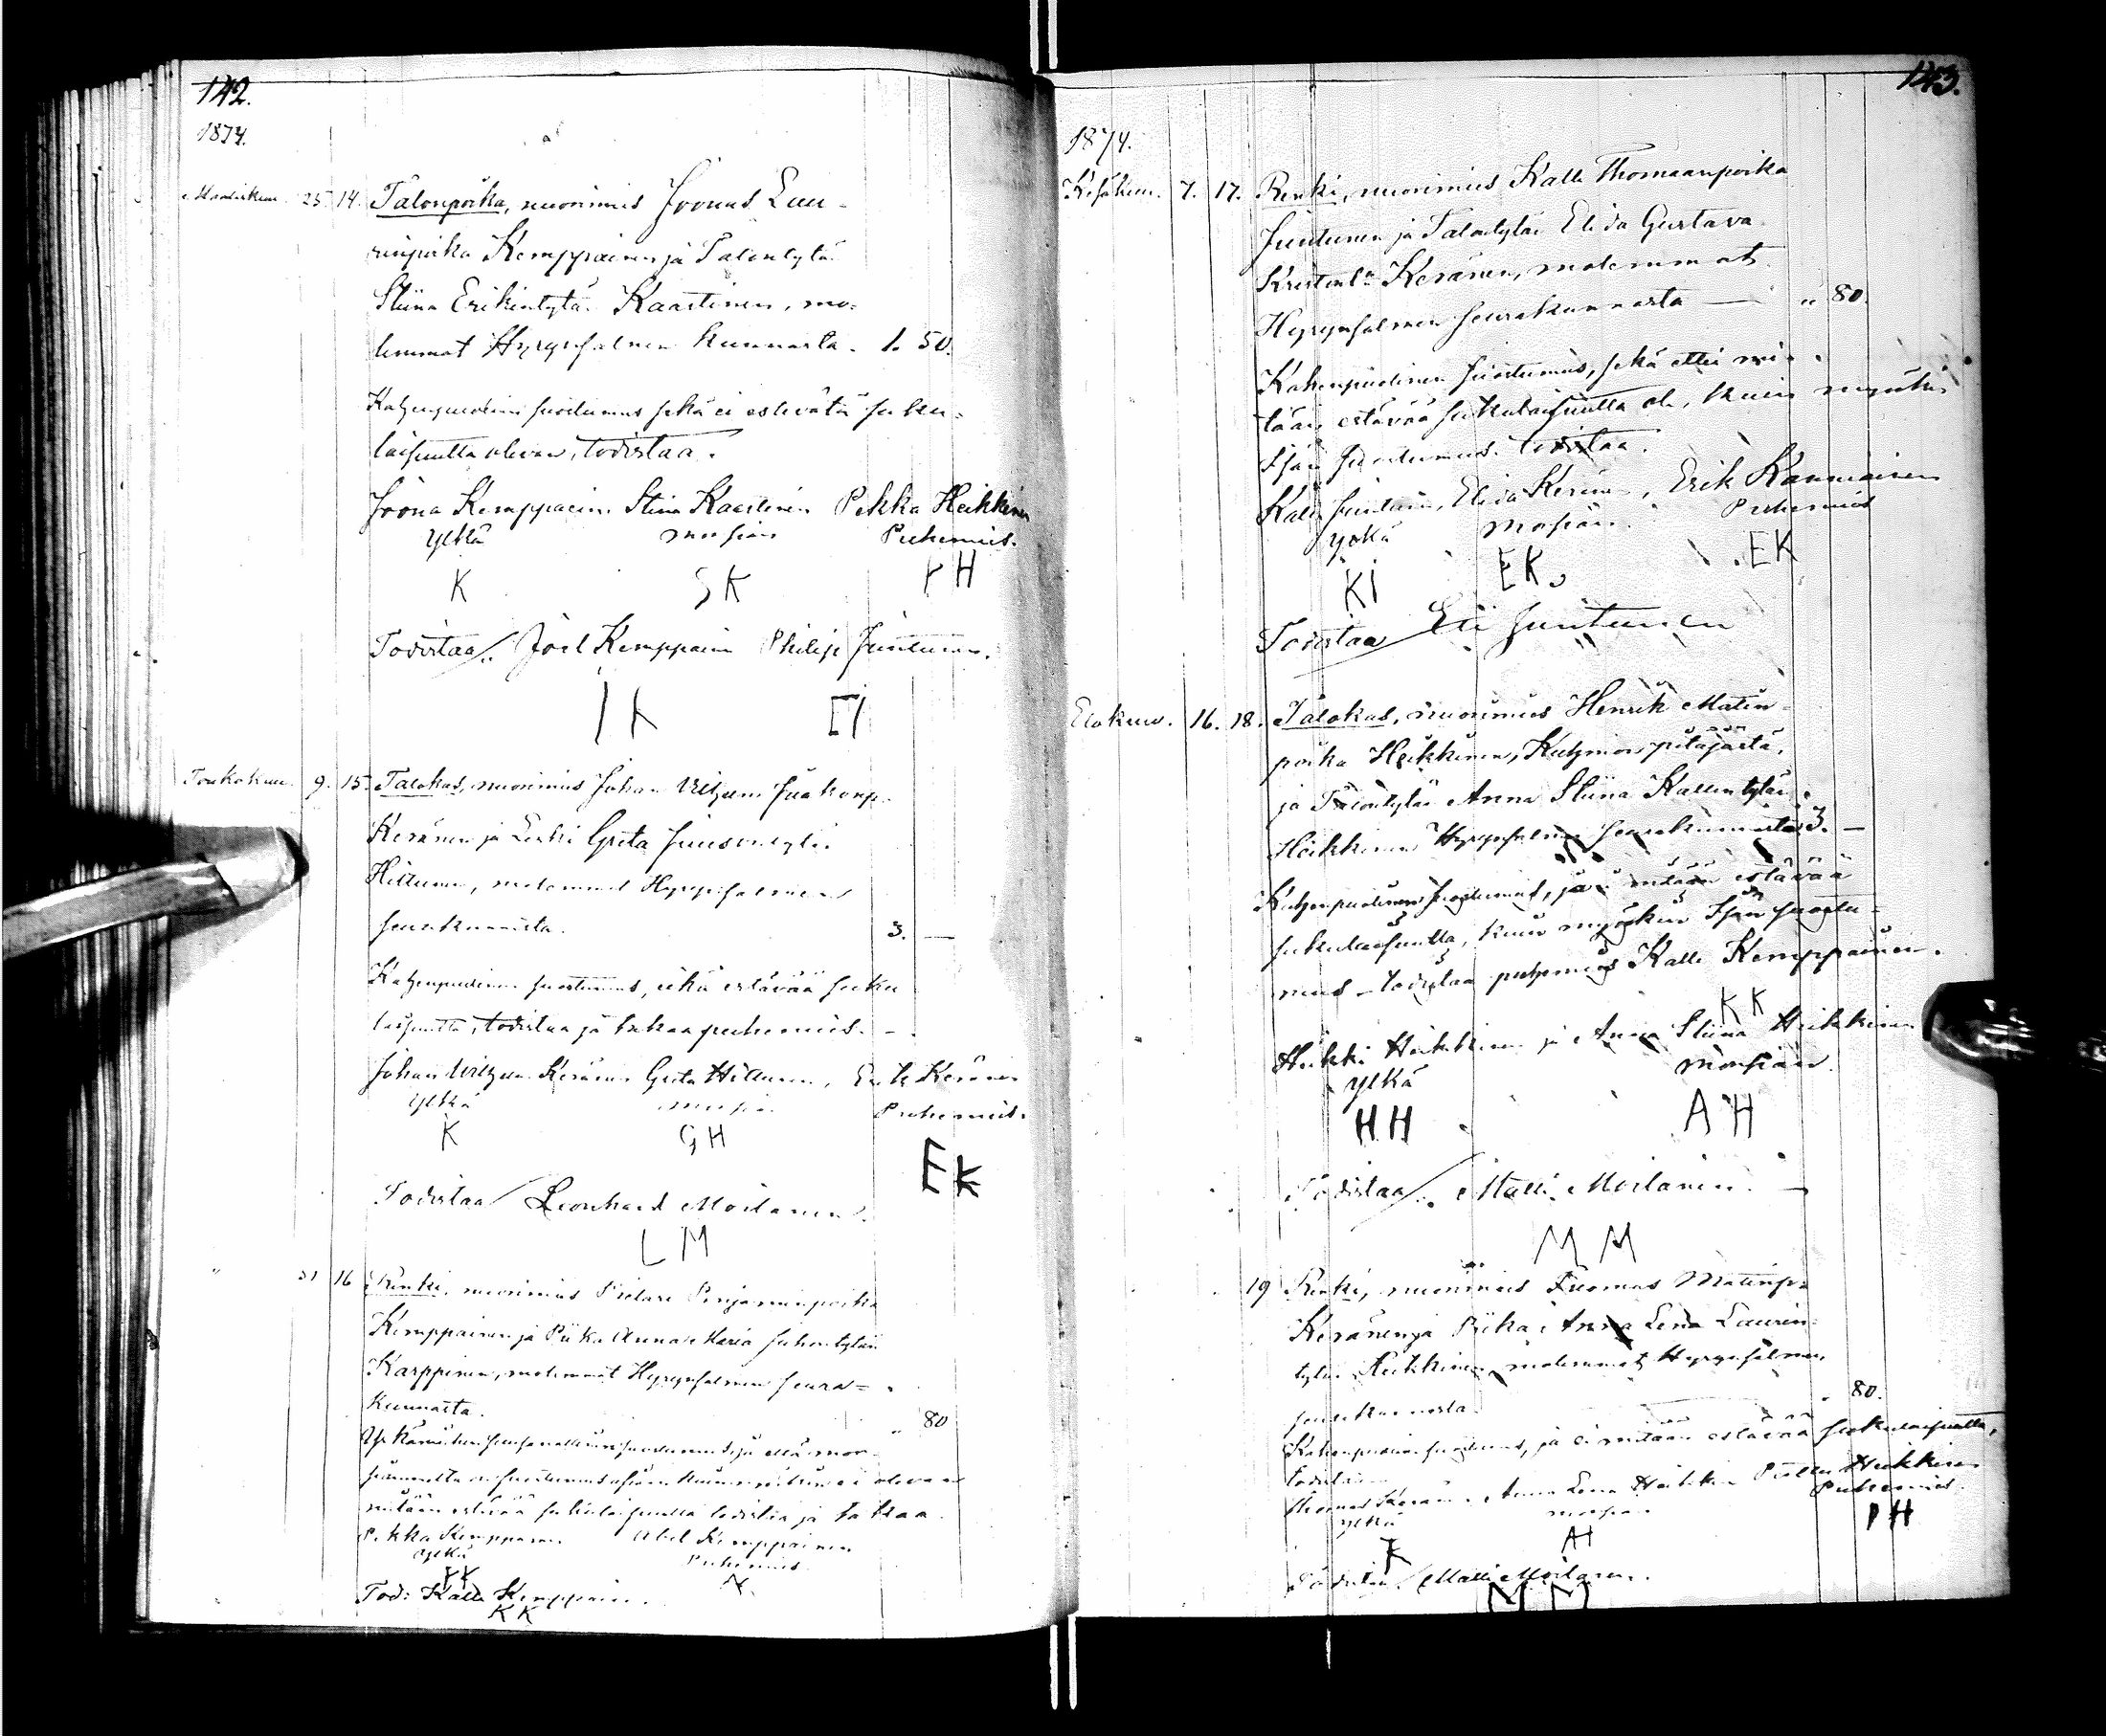 142.
1874.
Maaliskuu. 25. 14. Talonpoika, nuorimies Joonas Lau-
rinpoika Kemppainen ja Talontytär
Stiina Erikintytär Kaartinen, mo-
lemmat Hyrynsalmen kunnasta. 1. 50.
Kahenpuolinen suostumus sekä ei estävätä suku-
laisuutta olevan, todistaa.
Joona Kemppainen Stiina Kaartinen Pekka Heikkinen
Ylkä morsian Puhemies.
K SK PH
Todistaa Joel Kemppainen Philip Juntunen.
IK
Toukokuu. 9. 15. Talokas, nuorimies Johan Vilhjam Jaakonp.
Keränen ja Leski Greta Juusontytär
Hiltunen, molemmat Hyrynsalmen
seurakunnasta. 3. —
Kahenpuolinen suostumus, eikä estävää suku
laisuutta, todistaa ja takaa puhemies. —
Johan Keränen Greta Hiltunen, Erik Keränen
Ylkä morsian Puhemies.
K GH EK
Todistaa Leonhard Moilanen.
LM
" 31 16 Renki, nuorimies Pietari Penjaminpoika
Kemppainen ja Piika Anna Maria Juhontytär
Karppinen, molemmat Hyrynsalmen seura=
kunnasta. " 80
mitään estävää sukulaisuutta todistaa ja takaa.
Pekka Kemppainen Abel Kemppainen
Ylkä Puhemies
Tod: Kalle Kemppainen.
KK
143.
1874.
Kesäkuu. 7. 17. Renki, nuorimies Kalle Thomaanpoika
Juntunen ja Talontytär Elida Gustava
Keränen, molemmat
Hyrynsalmen seurakunnasta — " 80.
Kahenpuolinen suostumus, sekä ettei mi-
tään estävää sukulaisuutta ole, kuin myöskin
Isän suostumus todistaa.
Kalle Juntunen, Elida Keränen, Erik Kanniainen
Ylkä Morsian. Puhemies
KI EK. EK
Todistaa Eli Juntunen
Elokuu. 16. 18. Talokas, nuorimies Henrik Matin-
poika Heikkinen, Kuhmon pitäjästä,
ja Talontytär Anna Stiina Kallentytär
Heikkinen Hyrynsalmen seurakunnasta 3. —
Kahenpuolinen suostumus, ja ei mitään estävää
sukulaisuutta, kuin myöskin Isän suostu=
mus – todistaa puhemies Kalle Kemppainen.
KK
Heikki Heikkinen ja Anna Stiina Heikkinen
Ylkä morsian.
HH AH
Todistaa Matti Moilanen. —
MM
19 Renki, nuorimies Tuomas Matinp.
Keränen ja Piika Anna Lena Laurin-
tytär Heikkinen molemmat Hyrynsalmen
seurakunnasta " 80.
Kahenpuolinen suostumus, ja ei mitään estävää sukulaisuutta,
todistaa
Thomas Keränen. Anna Lena Heikkinen Heikkinen
Ylkä morsian Puhemies.
K AH PH
Todistaa Matti Moilanen.
MM